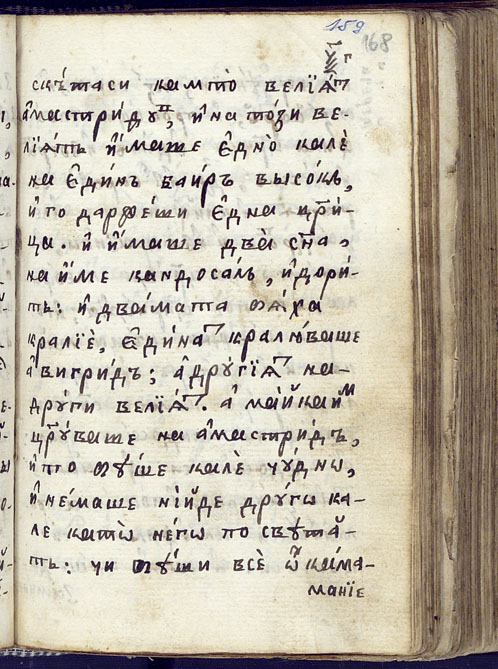 159
168
скѣтаси камто̀ велїѧ́т
а҆мастри́дꙋ, и҆ на то́зи ве-
лїѧ́тъ и҆́маше є҆дно̀ калѐ
на є҆ди́нъ баи́ръ высо́къ,
и҆ го даржѐши є҆дна цр҃и́-
ца. и҆ и҆́маше два̀ сн҃а,
на и҆́ме кандоса́лъ, и҆ дори́-
тъ: и҆ двамата бѧ́ха
кралїѐ, є҆ди́нат кралю́ваше
а҆вигри́дъ; а҆ дрꙋ́гїѧт на-
дрꙋ́ги велїѧ́т. а҆ ма́йкаим
цр҃ꙋ́ваше на а҆мастри́дъ,
и҆ то бѣ́ше калѐ чꙋ́днѡ,
и҆ не́маше нїйде дрꙋ́гѡ ка-
ле катѡ̀ не́гѡ по свѣ́та-
тъ: чи бѣ́ши всѐ ѿ ка́ма-
манїе